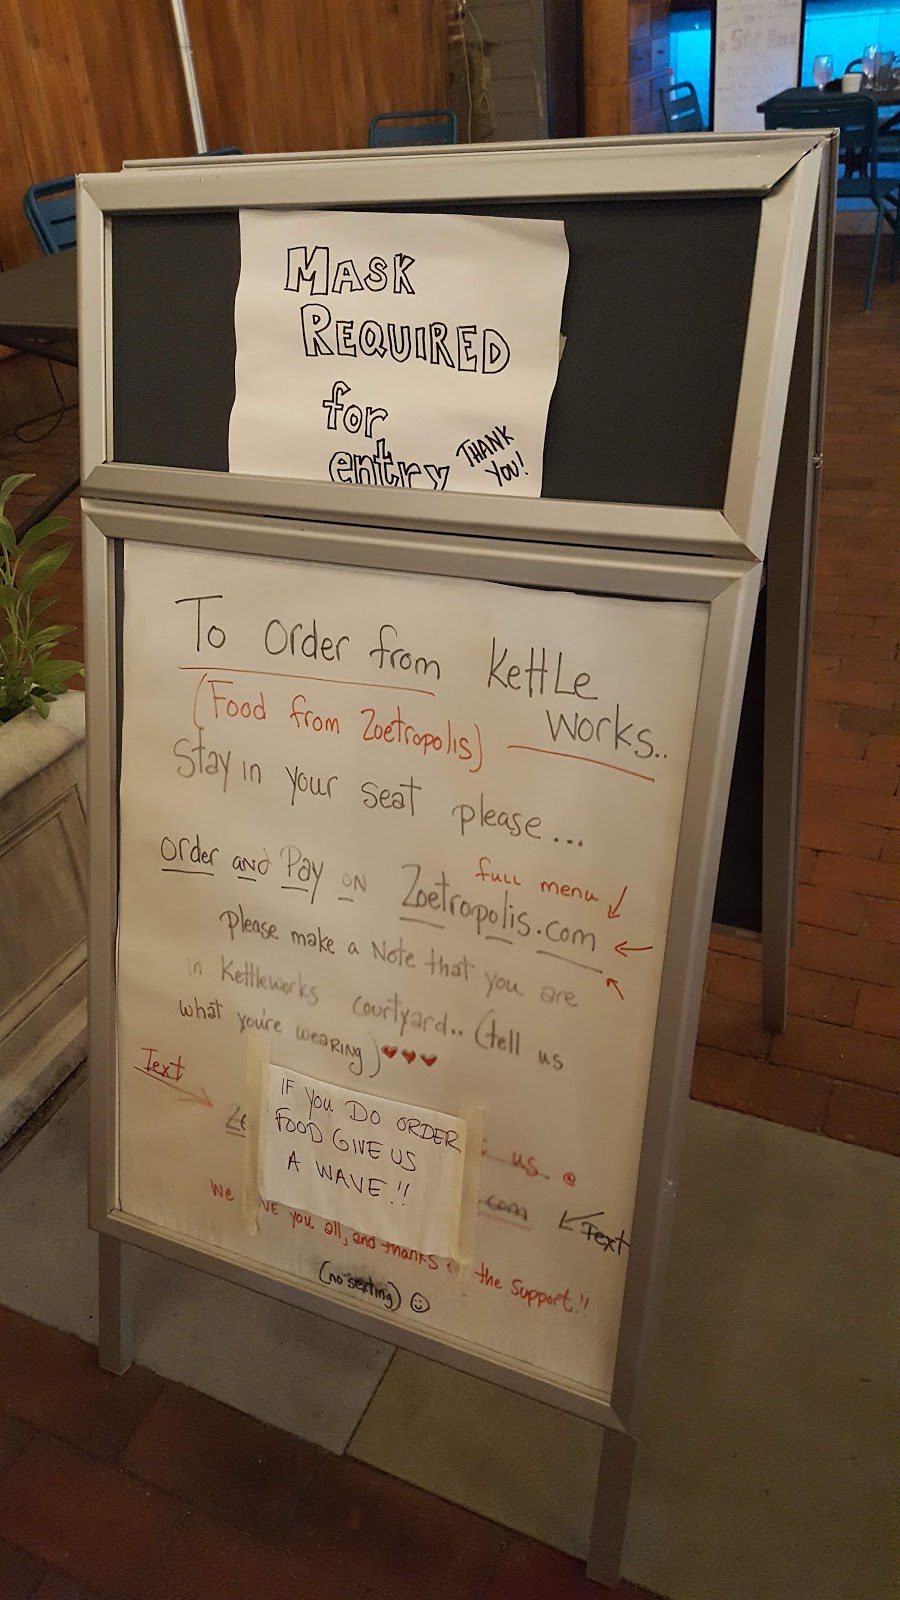 MASK
REQUIRED
for
entry
THANK
YOU!
To order from Kettle
works..
(Food from Zoetropolis)
Stay in your seat please...
order and Pay on Zoetropolis.com
full menu
please make a Note that you are
in Kettleworks courtyard.. (tell us
what you're wearing)
Text
IF YOU DO ORDER
FOOD GIVE US
A WAVE!!
us @
.com
Text
We you all, and thanks the support!!
(no sexting)